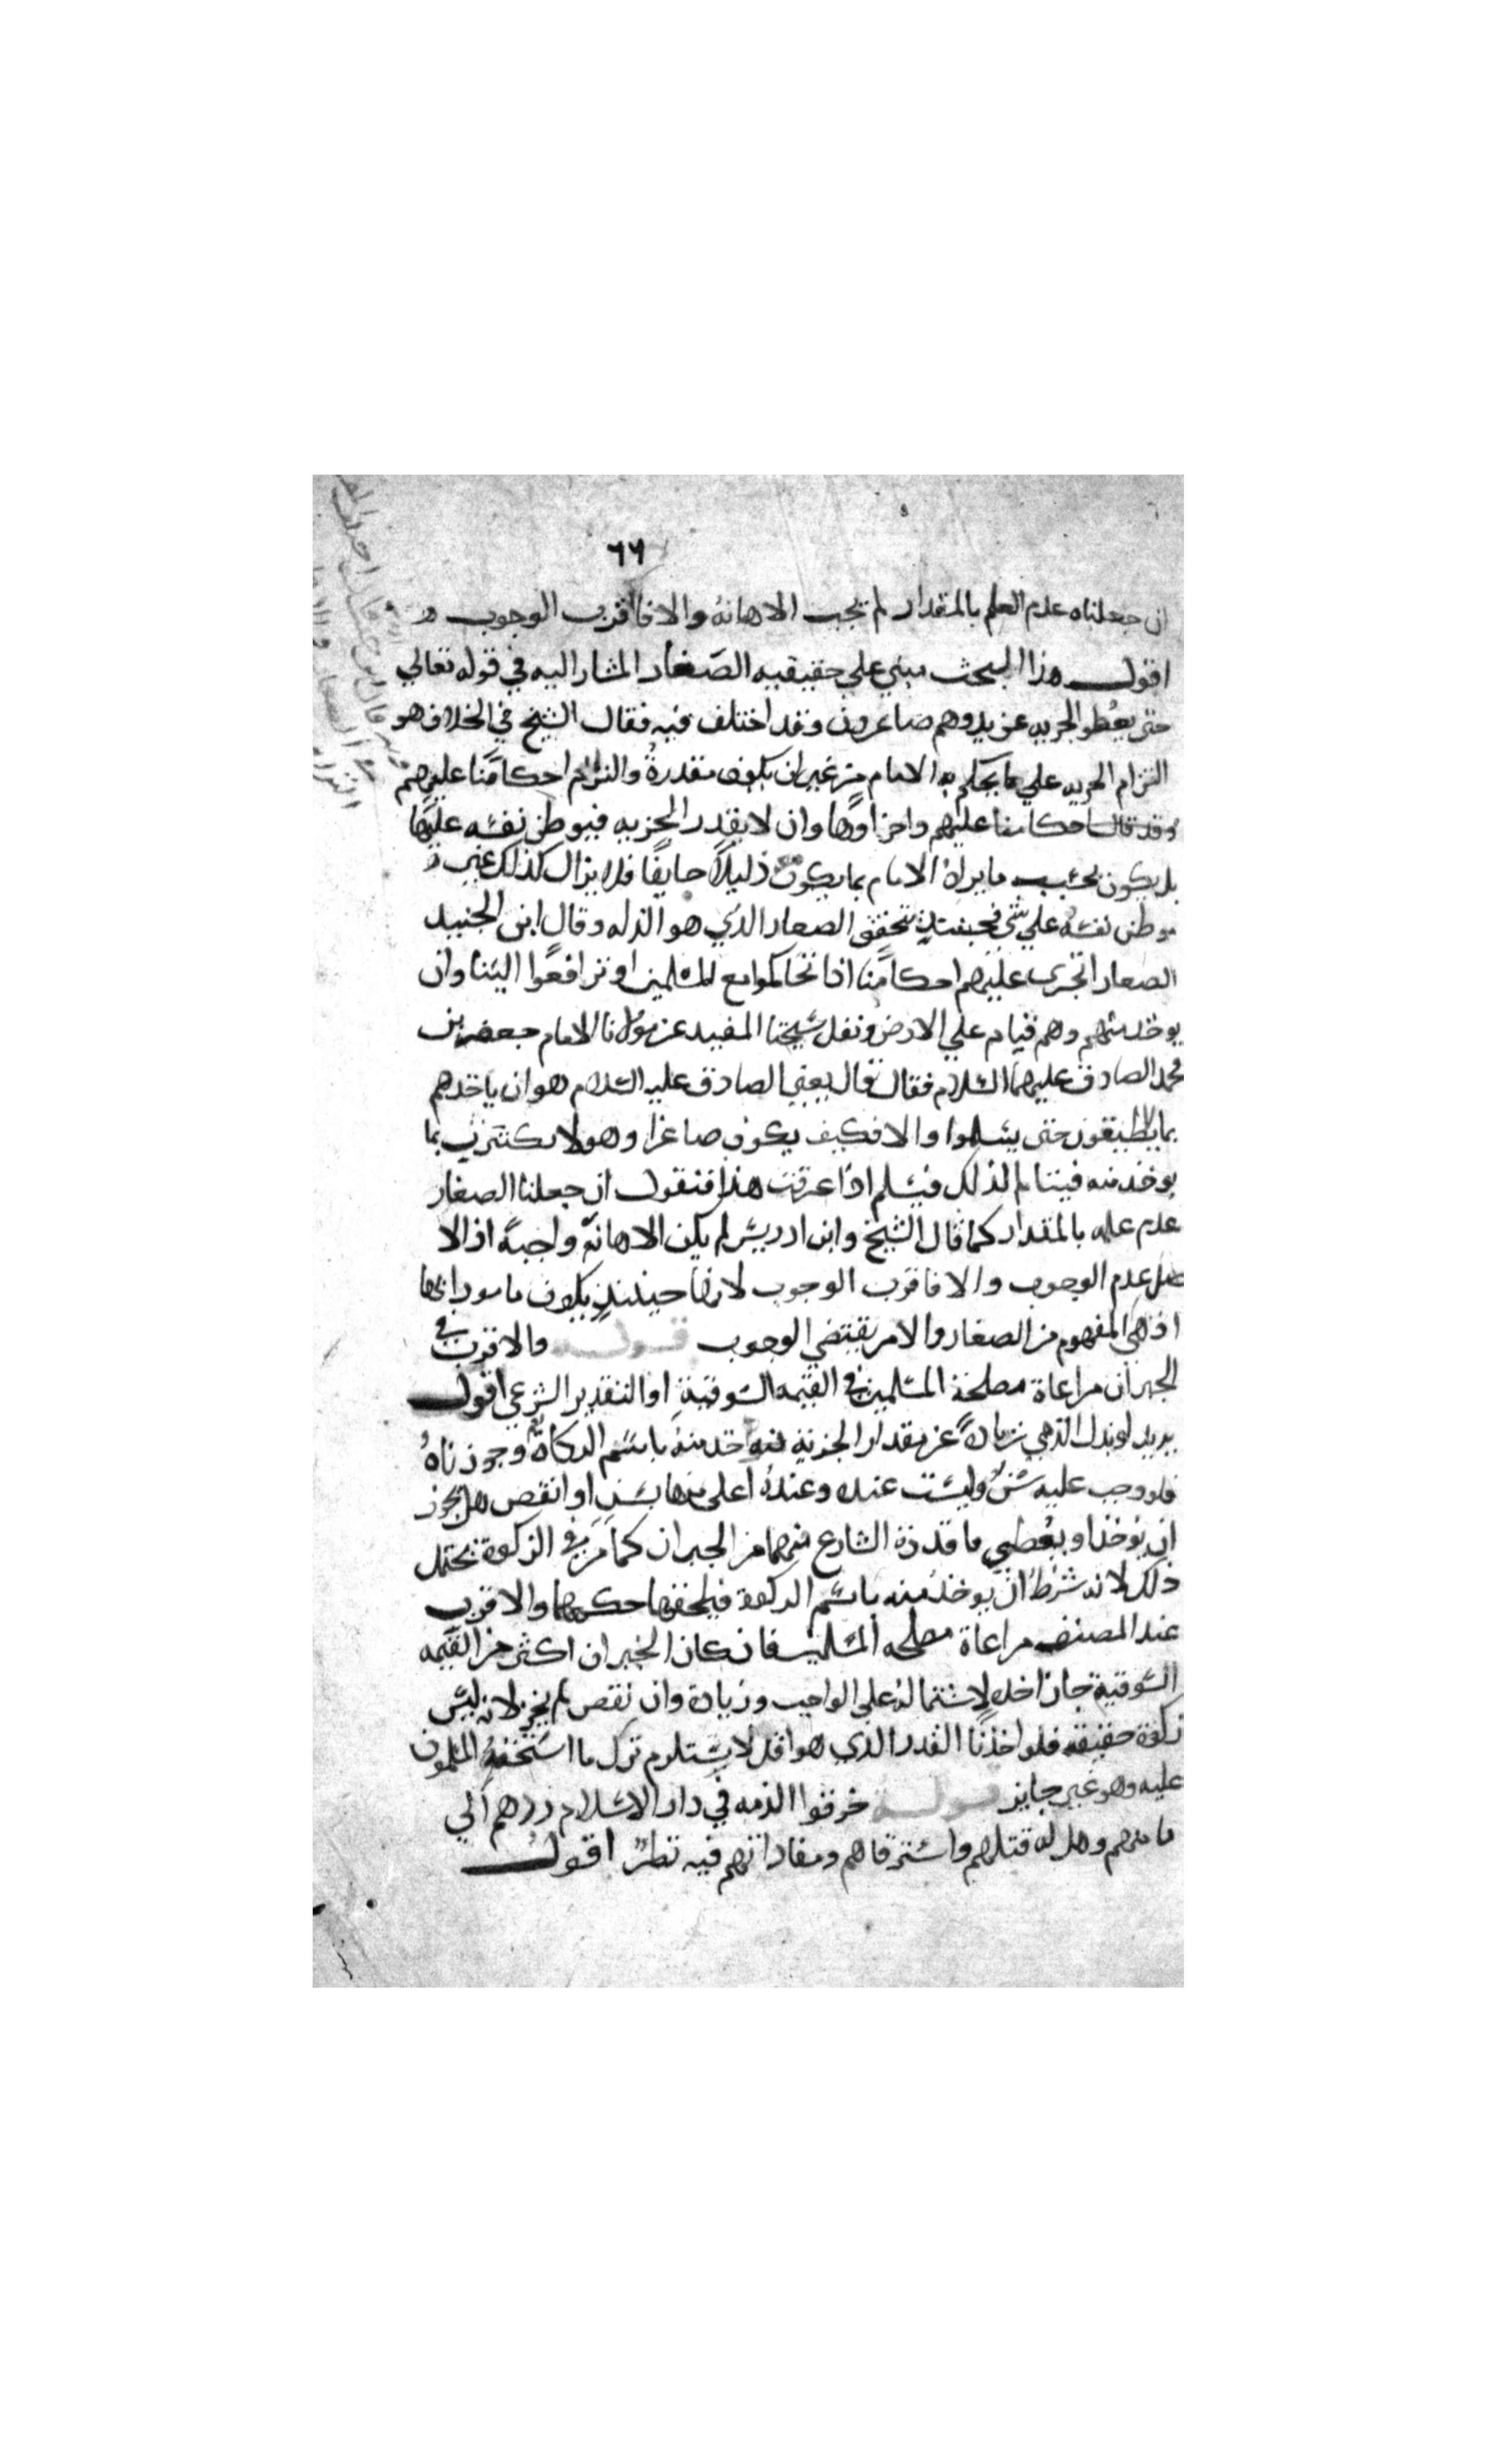 ٦٦
ان جعلناه عدم العلم بالمقدار لم تجب الاهانة والا فاقرب الوجوب
اقول هذا البحث مبني علي حقيقيه الصغار المشار اليه في قوله تعالي
حتي يعطو الجزيه عن يد وهم صاغرون وقد اختلف فيه فقال الشيخ في الخلاف هو
التزام الجزيه علي ما يحكم به الامام من غير ان يكون مقدرة والتزام احكامنا عليهم
وقد قال احكامنا عليهم واجزاؤها وان لا يقدر الجزيه فيوطن نفسه عليها
بل يكون بحسب ما يراه الامام بما يكون ذليلا خايفا فلا يزال كذلك غير
موطن نفسه علي شي فحينئذ يتحقق الصغار الذي هو الذله وقال ابن الجنيد
الصغار ان تجري عليهم احكامنا اذا تحاكموا مع المسلمين او ترافعوا الينا وان
يوخذ منهم وهم قيام علي الارض ونقل شيخنا المفيد عن مولانا الامام جعفر بن
محمد الصادق عليهما السلام فقال قال يعني الصادق عليه السلام هو ان ياخذهم
بما لا يطيقون حتي يسلموا والا فكيف يكون صاغرا وهو لا يكترث بما
يوخذ منه فيتالم لذلك فيسلم اذا عرفت هذا فنقول ان جعلنا الصغار
عدم علمه بالمقدار كما قال الشيخ وابن ادريس لم يكن الاهانة واجبة اذ الا
صل عدم الوجوب والا فاقرب الوجوب لانها حينئذ يكون مامورا بها
اذ هي المفهوم من الصغار والامر يقتضي الوجوب قوله والاقرب في
الجبران مراعاة مصلحة المسلمين في القيمه السوقية او التقدير الشرعي اقول
يريد لو بذل الذمي زيادة عن مقدار الجزية فواخذ منه باسم الزكاة وجوزناه
فلو وجب عليه سن وليست عنده وعنده اعلي منها بسن او انقص هل يجوز
ان يوخذ او يعطي ما قدره الشارع فيهما من الجبران كما مر في الزكوة يحتمل
ذلك لانه شرط ان يوخذ منه باسم الزكوة فيلحقها حكمها والاقرب
عند المصنف مراعاة مصلحه المسلمين فان كان الجبران اكثر من القيمه
السوقية جاز اخذه لاشتماله علي الواجب وزيادة وان نقص لم يجز لانه ليس
زكوة حقيقه فلو اخذنا القدر الذي هو اقل لاستلزم ترك ما استحقه المسلمون
عليه وهو غير جايز قوله خرقوا الذمه في دار الاسلام ردهم الي
مامنهم وهل له قتلهم واسترقاهم ومفاداتهم فيه نظر اقول